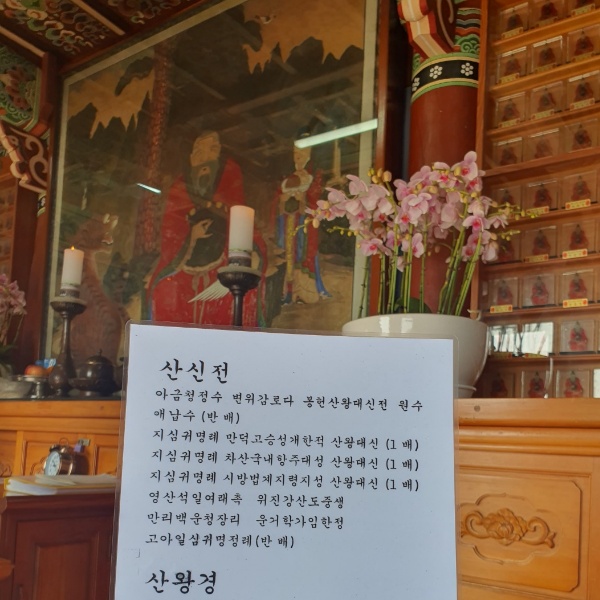 산신전
아금청정수 변위감로다 봉헌산왕대신전 원수
애납수 (반 배)
지심귀명례 만덕고승성개한적 산왕대신 (1 배)
지심귀명례 차산국내항주대성 산왕대신 (1 배)
지심귀명례 시방법계지령지성 산왕대신 (1 배)
영산석일여래촉 위진강산도중생
만리백운청장리 운거학가임한정
고아일심귀명정례(반 배)
산왕경